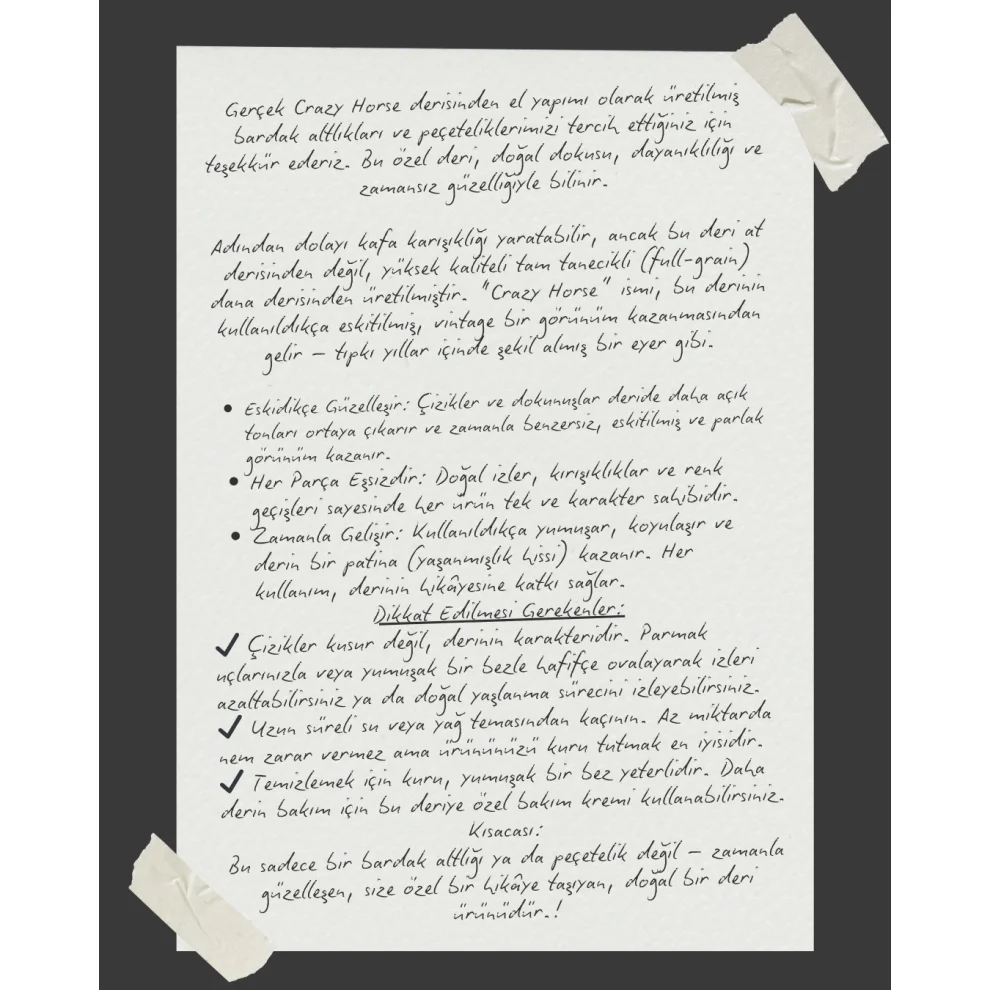 Gerçek Crazy Horse derisinden el yapımı olarak üretilmiş
bardak altlıkları ve peçeteliklerimizi tercih ettiğiniz için
teşekkür ederiz. Bu özel deri, doğal dokusu, dayanıklılığı ve
zamansız güzelliğiyle bilinir.
Adından dolayı kafa karışıklığı yaratabilir, ancak bu deri at
derisinden değil, yüksek kaliteli tam tanecikli (full-grain)
dana derisinden üretilmiştir. "Crazy Horse" ismi, bu derinin
kullanıldıkça eskitilmiş, vintage bir görünüm kazanmasından
gelir – tıpkı yıllar içinde şekil almış bir eyer gibi.
• Eskidikçe Güzelleşir: Çizikler ve dokunuşlar deride daha açık
tonları ortaya çıkarır ve zamanla benzersiz, eskitilmiş ve parlak
görünüm kazanır.
• Her Parça Eşsizdir: Doğal izler, kırışıklıklar ve renk
geçişleri sayesinde her ürün tek ve karakter sahibidir.
• Zamanla Gelişir: Kullanıldıkça yumuşar, koyulaşır ve
derin bir patina (yaşanmışlık hissi) kazanır. Her
kullanım, derinin hikâyesine katkı sağlar.
Dikkat Edilmesi Gerekenler:
✔ Çizikler kusur değil, derinin karakteridir. Parmak
uçlarınızla veya yumuşak bir bezle hafifçe ovalayarak izleri
azaltabilirsiniz ya da doğal yaşlanma sürecini izleyebilirsiniz.
✔ Uzun süreli su veya yağ temasından kaçının. Az miktarda
nem zarar vermez ama ürününüzü kuru tutmak en iyisidir.
✔ Temizlemek için kuru, yumuşak bir bez yeterlidir. Daha
derin bakım için bu deriye özel bakım kremi kullanabilirsiniz.
Kısacası:
Bu sadece bir bardak altlığı ya da peçetelik değil – zamanla
güzelleşen, size özel bir hikâye taşıyan, doğal bir deri
ürünüdür.!